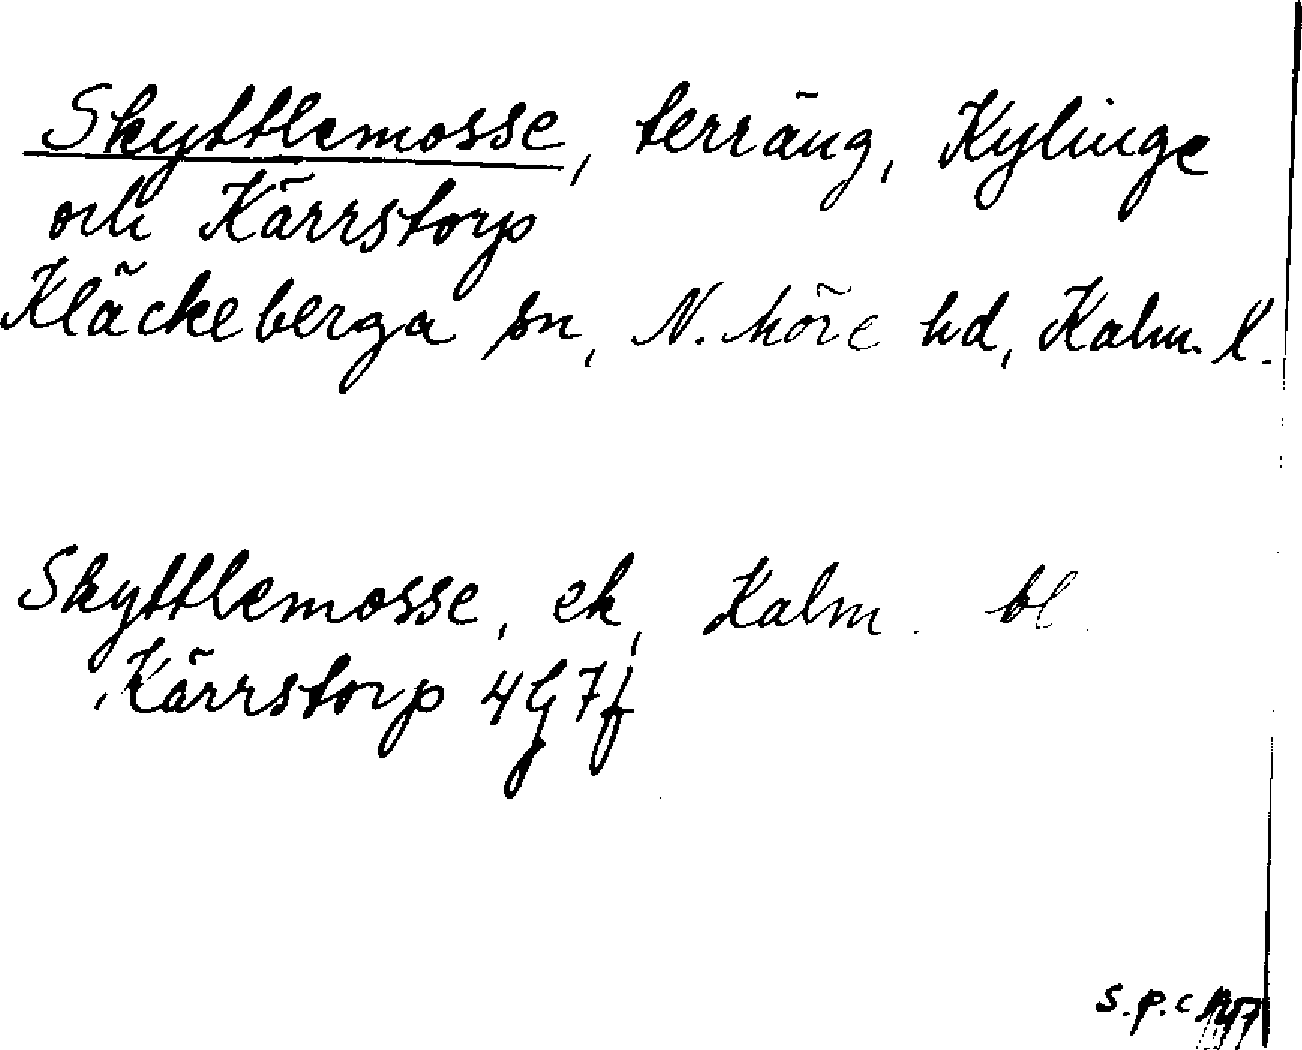 Skyttlemosse, terräng, Kylinge
och Kärrstorp
Kläckeberga sn, N. Möre hd, Kalm. l.
Skyttlemosse, ek, Kalm. bl
Kärrstorp 4G7f
s.p.c